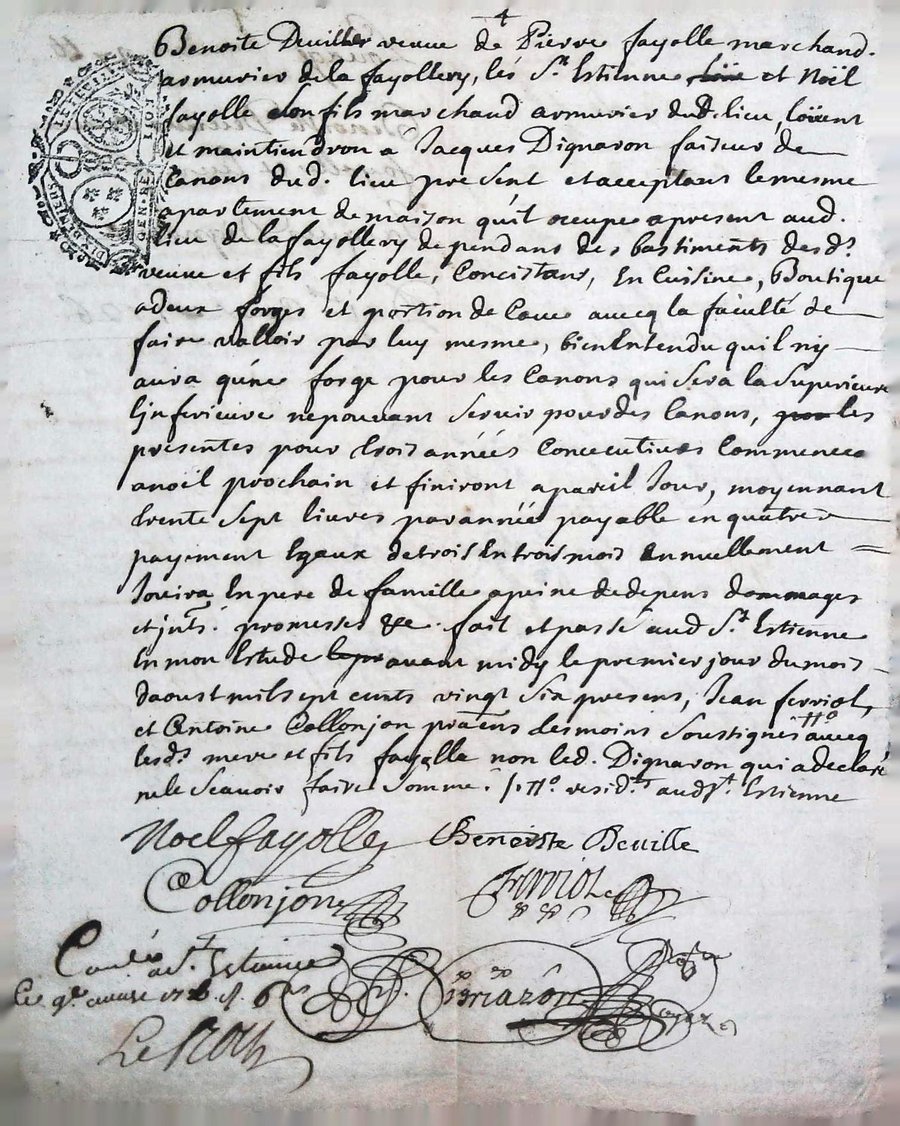 4
Benoite Deville veuve de Pierre fayolle marchand.
armurier de la fayollery, les Sr. Estienne et Noël
fayolle Son fils marchand armurier dud. lieu, loüent
et maintiendron à Jacques Dignaron faiseur de
Canons dud. lieu present et acceptans le mesme
apartement de maison qu'il occupe apresent aud.
lieu de la fayollery dependans des bastiments desds.
veuve et fils fayolle, Concistans, En Cuisine, Boutique
adeux forges et portion de Cave avecq la faculté de
faire valloir par luy mesme, bien Entendu quil ny
aura qúne forge pour les Canons qui Sera la Superieure
l'inferieure ne pouvant Servir pour des Canons, les
presentes pour trois années Concecutives Commencer
anoël prochain et finiront apareil Jour, moyennant
trente Sept livres par année payable en quatre
payement Egaux de trois En trois mois annuellement
Jouira En pere de famille apeine de depens dommages
et jnts. promesses &c. fait et passé aud St. Estienne
En mon Estude avant midy le premier jour du mois
daoust mil sept cents vingt Six presens, Jean ferriol,
et Antoine Collonjon tesmoins Soussignés avecq
lesds. mere et fils fayolle non led. Dignaron qui a declaré
ne le Scavoir faire Sommé. residts. aud St. Estienne
Noel fayolle Benoiste Deville
Collonjon Ferriol
Conlé a St. Estienne
Le 9e aoust 1726